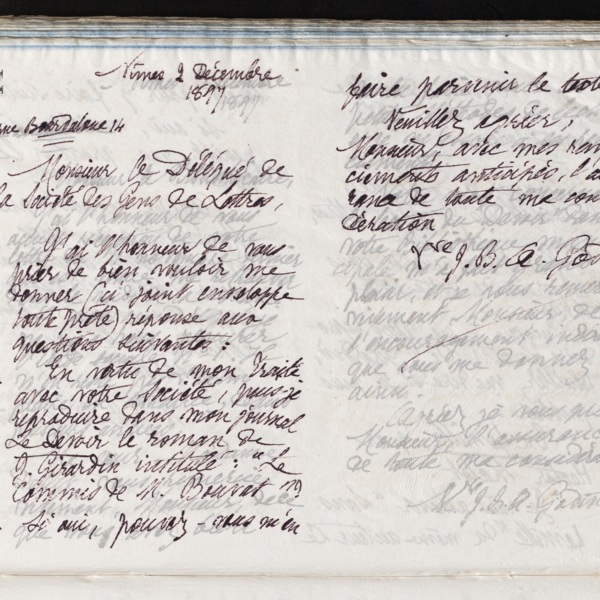 Nîmes 2 Décembre
1897
rue Bourdaloue 14
Monsieur le Délégué de
la Société des Gens de Lettres,
J'ai l'honneur de vous
prier de bien vouloir me
donner (ci joint enveloppe
toute prête) réponse aux
questions suivantes :
En vertu de mon Traité
avec votre Société, puis-je
reproduire dans mon journal
Le Devoir le roman de
J. Girardin intitulé : "Le
Commis de M. Bouvat"?
Si oui, pouvez-vous m'en
faire parvenir le texte
Veuillez agréer,
Monsieur, avec mes remer
ciements anticipés, l'assu
rance de toute ma consi
dération
Vve J. B. A. Godin